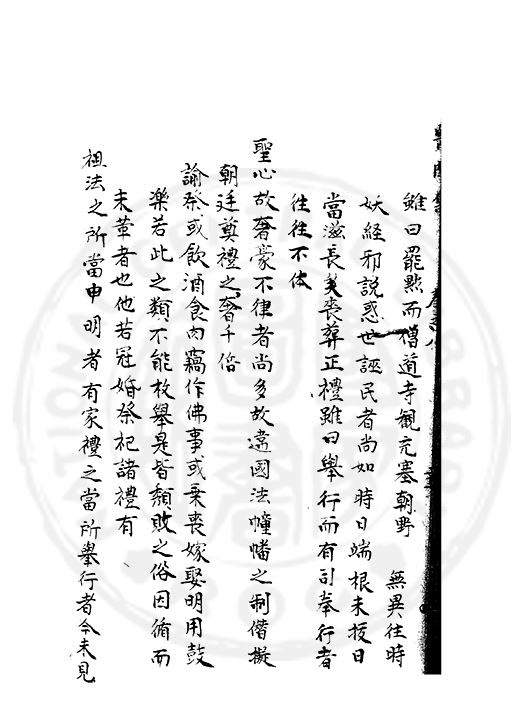 雖曰罷黜而僧道寺觀充塞朝野 無異往時
妖經邪說惑世誣民者尚如時日端根未拔日
當滋長矣喪葬正禮雖曰舉行而有司奉行者
往往不体
聖心故奢豪不律者尚多故違國法幢幡之制僭擬
朝廷奠禮之奢千倍
諭祭或飲酒食肉竊作佛事或乗喪嫁娶明用鼓
樂若此之類不能枚舉是皆頽敗之俗因循而
未革者也他若冠婚祭祀諸禮有
祖法之所當申明者有家禮之當所舉行者今未見